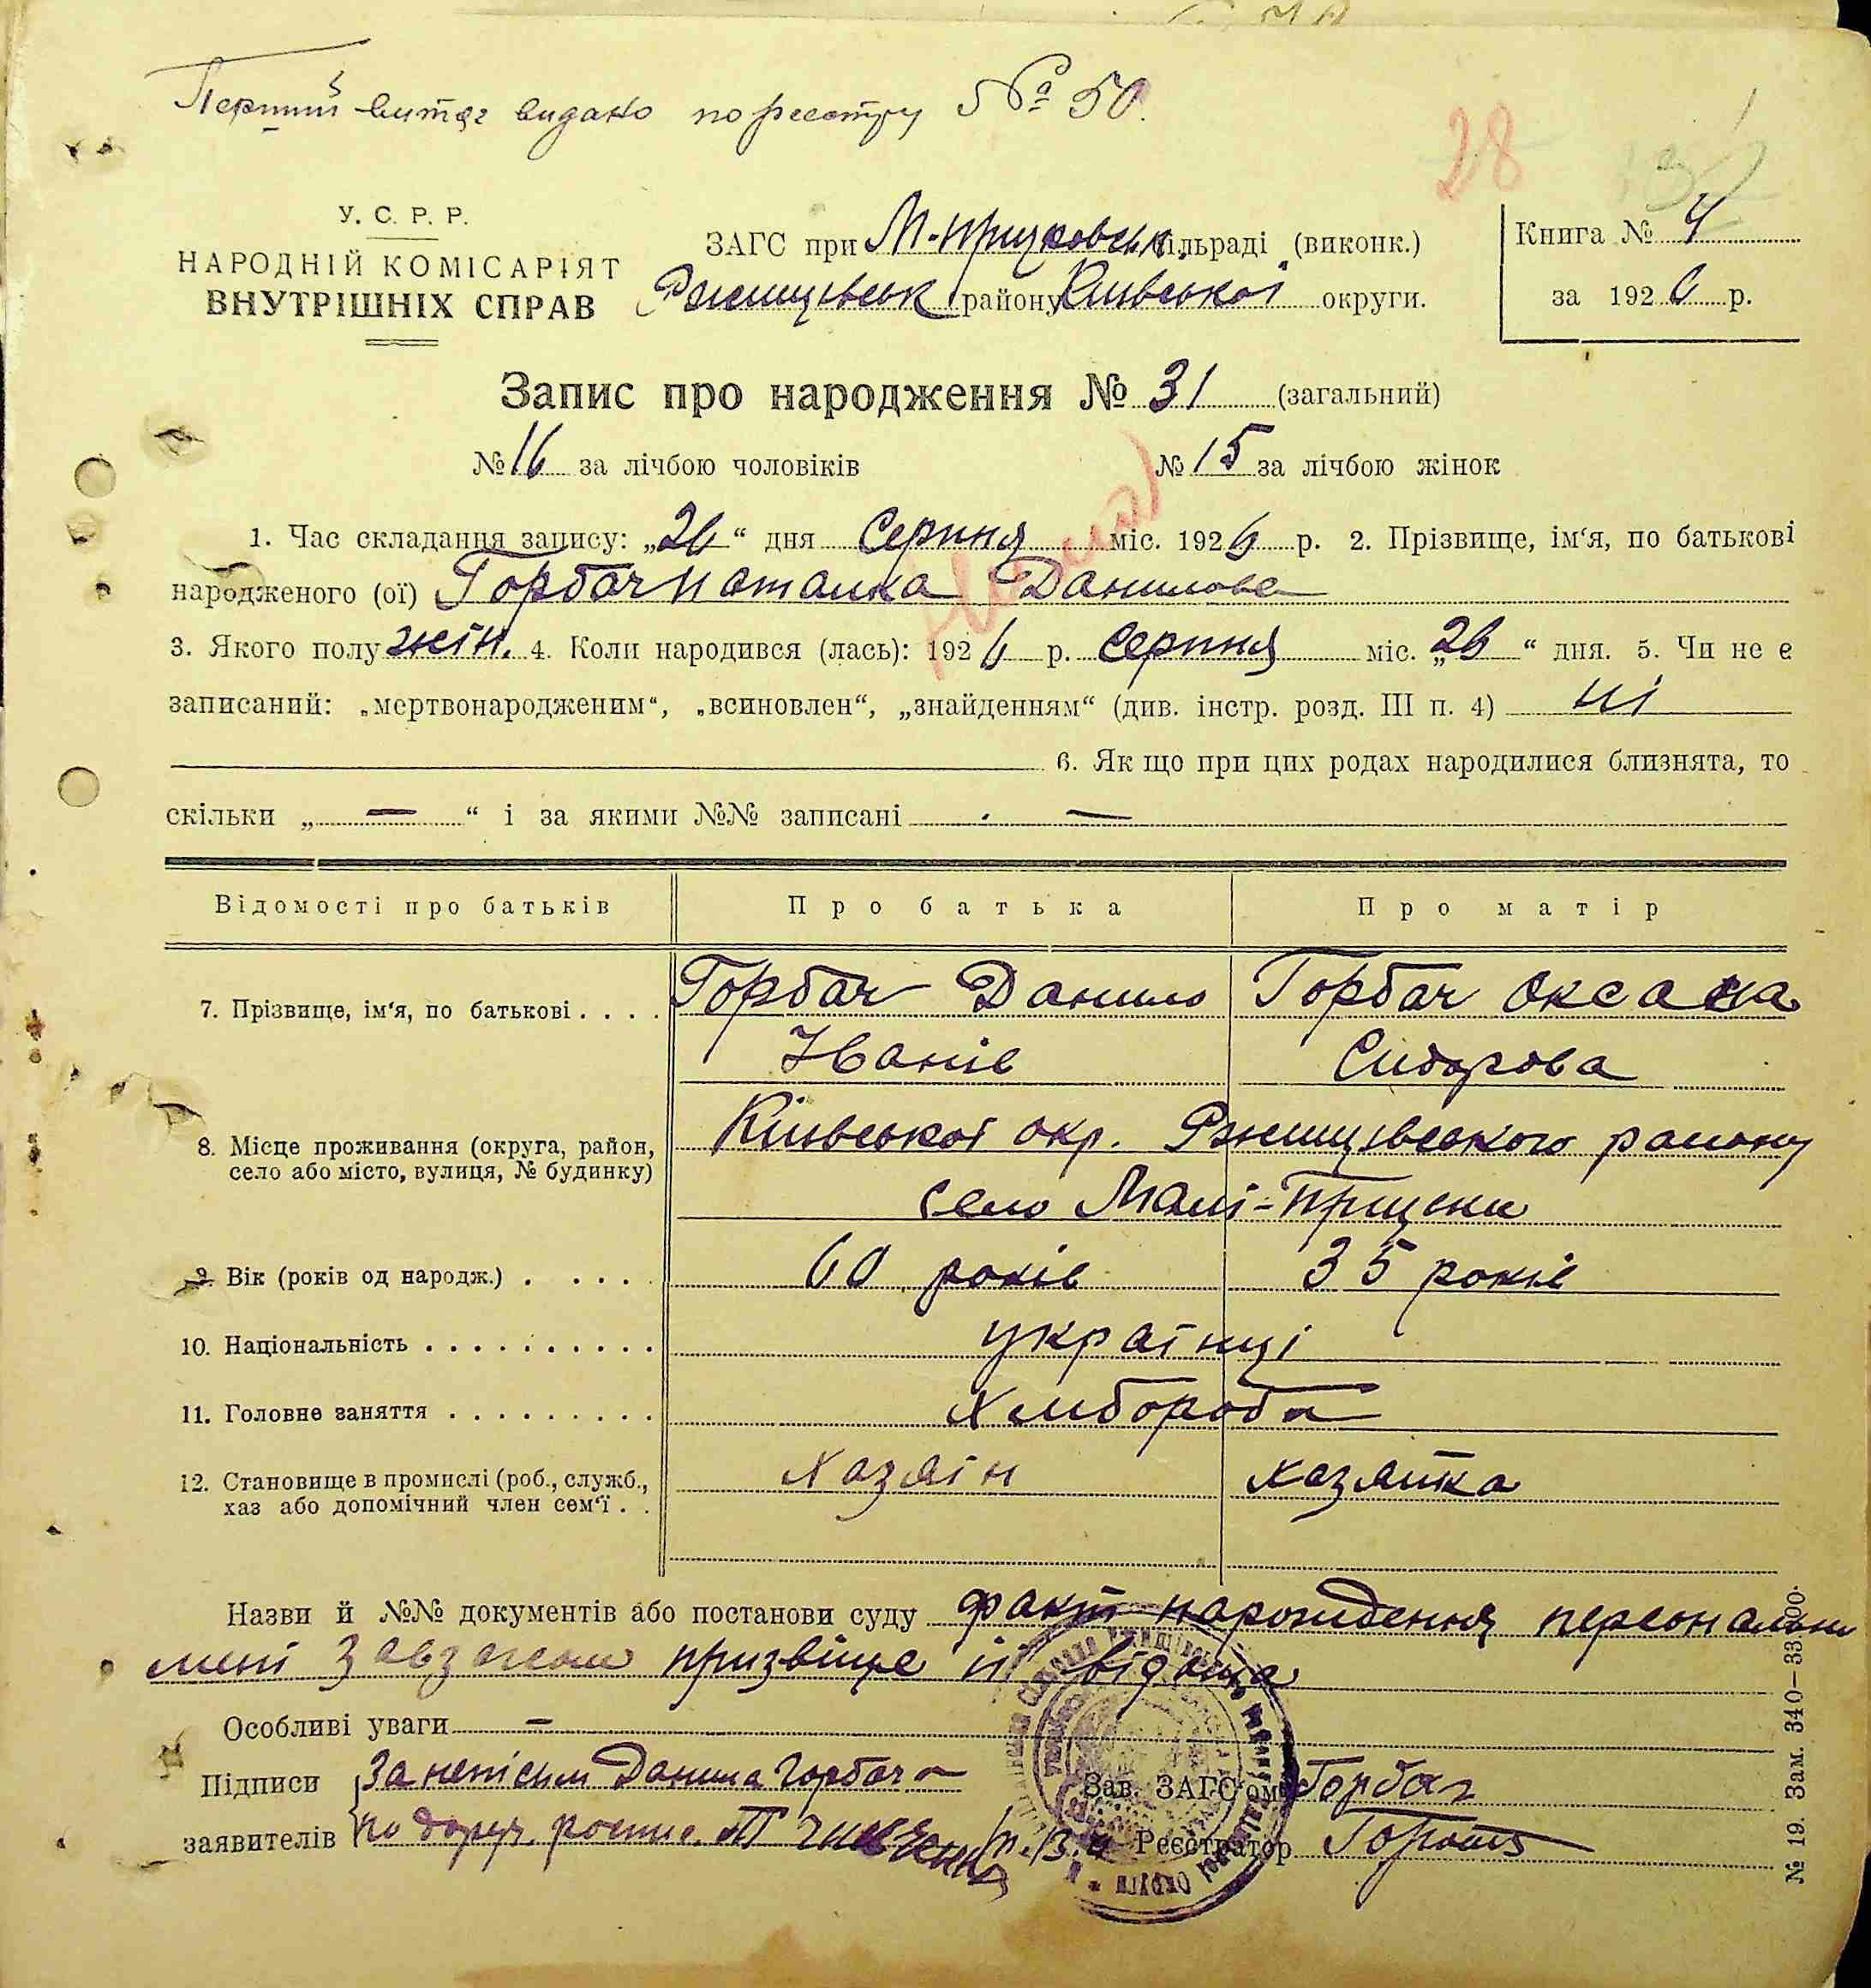 Перший витяг видано по реєстру № 50.
28
У. С. Р. Р.
НАРОДНІЙ КОМІСАРІЯТ
ВНУТРІШНІХ СПРАВ
ЗАГС при М-Прицковськ. сільраді (виконк.)
Ржищівськ району Київської округи.
Книга № 4
за 1926 р.
Запис про народження № 31 (загальний)
№ 16 за лічбою чоловіків № 15 за лічбою жінок
1. Час складання запису: „26“ дня Серпня міс. 1926 р. 2. Прізвище, ім‘я, по батькові
народженого (ої) Горбач Наталка Данилова
3. Якого полу жін. 4. Коли народився (лась): 1926 р. Серпня міс. „26“ дня. 5. Чи не є
записаний: „мертвонародженим“, „всиновлен“, „знайденням“ (див. інстр. розд. III п. 4) ні
6. Як що при цих родах народилися близнята, то
скільки „ — “ і за якими №№ записані —
Відомості про батьків Про батька Про матір
7. Прізвище, ім‘я, по батькові . . . . Горбач Данило Горбач Оксана
Іванів Сидорова
8. Місце проживання (округа, район, Київської окр. Ржищівського району
село або місто, вулиця, № будинку)
село Малі-Прицки
9. Вік (років од народж.) . . . . . 60 років 35 років
10. Національність . . . . . . . . . . українці
11. Головне заняття . . . . . . . . . хлібороба
12. Становище в промислі (роб., служб., хазяїн хазяйка
хаз або допомічний член сем‘ї . .
Назви й №№ документів або постанови суду факт нарождення персонально
мені призвіще її відома
Особливі уваги —
Підписи За непісьм Данила Горбача Зав. ЗАГС‘ом Горбач
заявителів по доруч. роспис. Реєстратор
№ 19. Зам. 340—33.300.